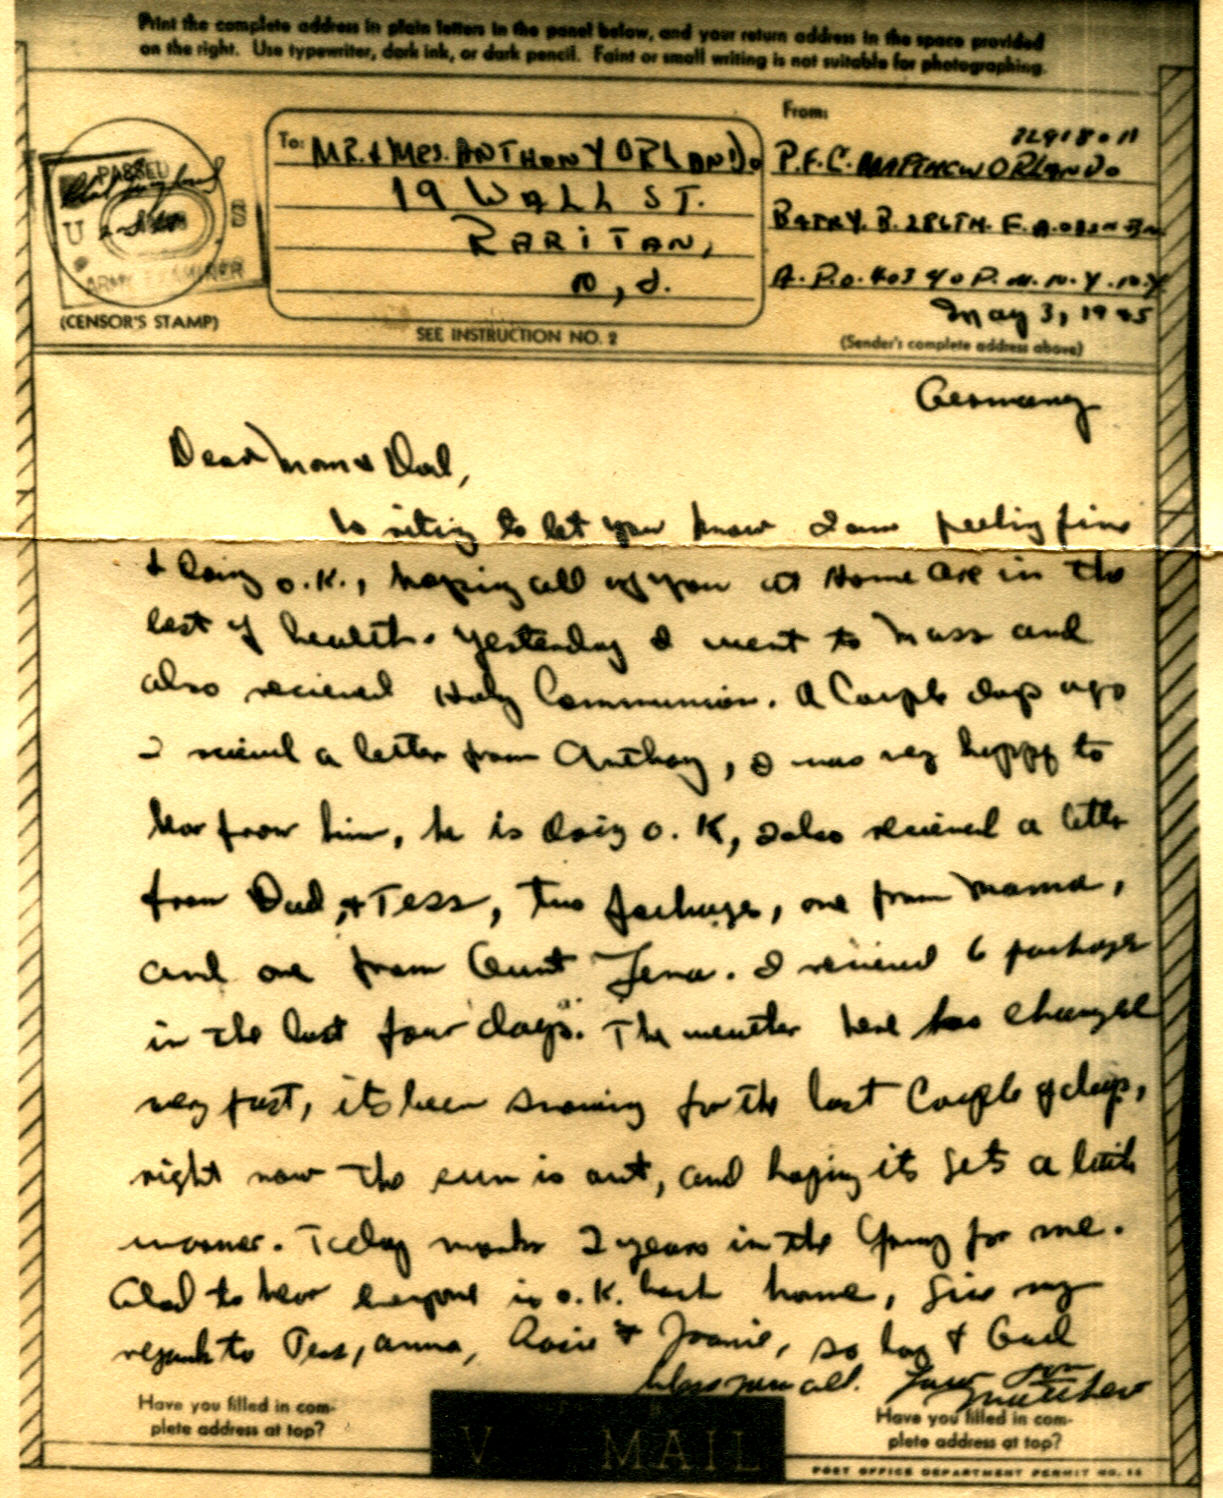 Print the complete address in plain letters in the panel below, and your return address in the space provided
on the right. Use typewriter, dark ink, or dark pencil. Faint or small writing is not suitable for photographing.
PASSED
U S
ARMY EXAMINER
(CENSOR'S STAMP)
To: MR. & MRS. ANTHONY ORLANDO
19 WALL ST.
RARITAN,
N. J.
SEE INSTRUCTION NO. 2
From:
P.F.C. MATTHEW ORLANDO
BATRY. B. 286TH. F. A. OBSN BN
A. P. O. 403 % P. M. N. Y. N.Y
May 3, 1945
(Sender's complete address above)
Germany
Dear Mom & Dad,
Writing to let you know I am feeling fine
& doing o.K., hoping all of you at Home are in the
best of health. Yesterday I went to Mass and
also recieved Holy Communion. A Couple days ago
I recieved a letter from Anthony, I was very happy to
hear from him, he is doing o.K, I also recieved a letter
from Dad, & Tess, two packages, one from Mama,
and one from Aunt Lena. I recieved 6 packages
in the last four days. The weather here has changed
very fast, its been snowing for the last Couple of days,
right now the sun is out, and hoping it gets a little
warmer. Today marks 2 years in the Army for me.
Glad to hear everyone is o.K. back home, give my
regards to Tess, Anna, Rosie & Joanie, so long & God
bless you all. Your son
Matthew
Have you filled in com-
plete address at top?
V-MAIL
Have you filled in com-
plete address at top?
POST OFFICE DEPARTMENT PERMIT NO.